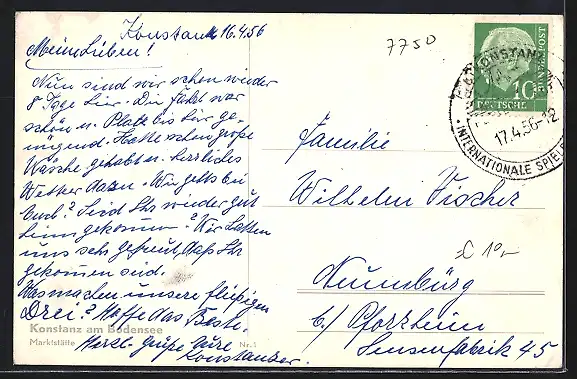 Konstanz 16.4.56
Meine Lieben!
Nun sind wir schon wieder
8 Tage hier. Die Fahrt war
schön u. Platt bis hier ge-
nügend. Hatte schon große
Wäsche gehabt u. herrliches
Wetter dazu. Wie gehts bei
Euch? Seid Ihr wieder gut
heim gekommen? Wir hatten
uns sehr gefreut, daß Ihr
gekommen seid.
Was machen unsere fleißigen
Drei? Hoffe das Beste.
Herzl. Grüße Eure
Konstanzer.
Konstanz am Bodensee
Marktstätte
Nr. 1
7750
KONSTANZ
17.4.56-12
INTERNATIONALE SPIELB
10
DEUTSCHE
BUNDESPOST
Familie
Wilhelm Vischer
Neuenbürg
b/ Pforzheim
Sensenfabrik 45